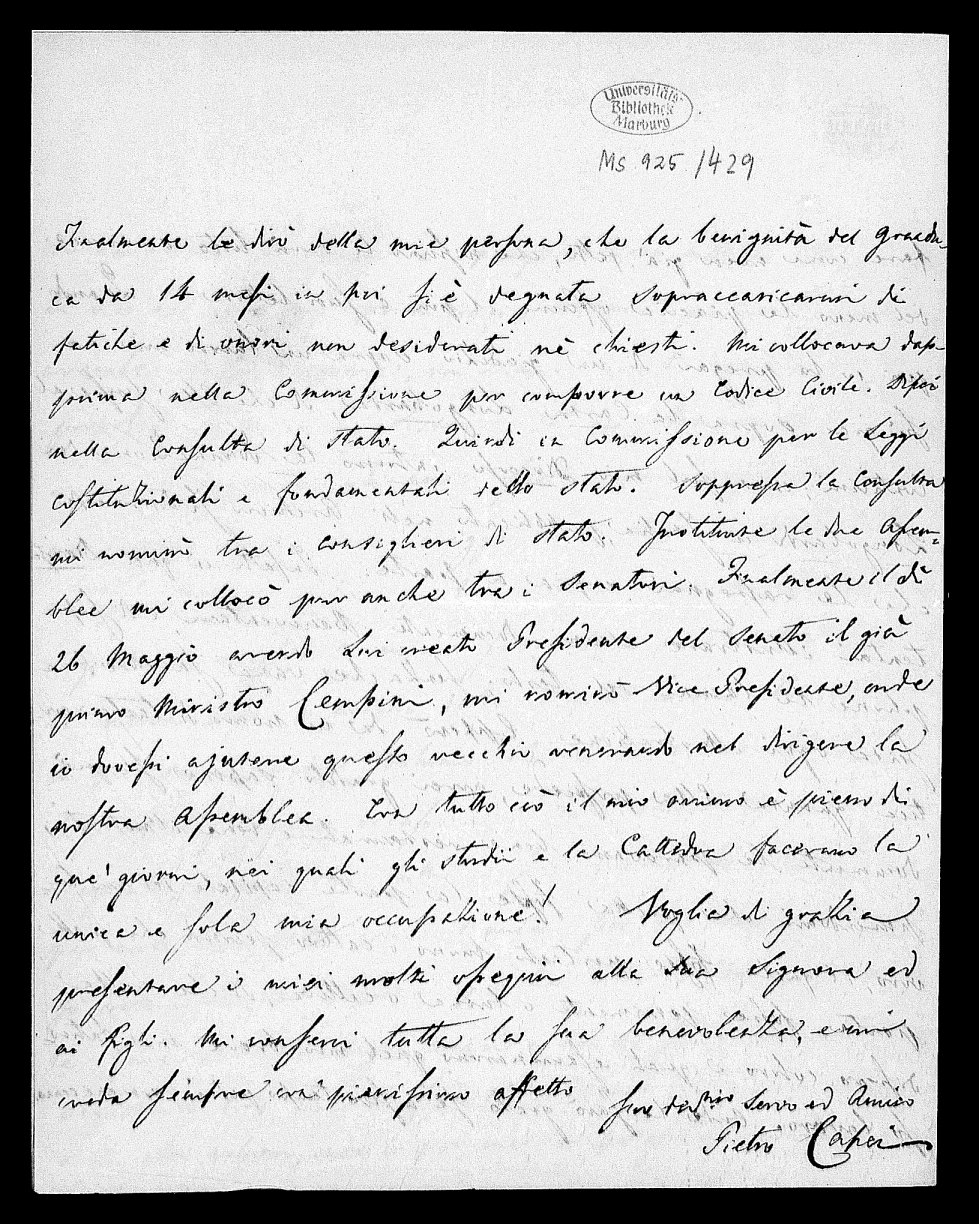 Universitäts-
Bibliothek
Marburg
Ms 925/429
Finalmente le dirò della mia persona, che la benignità del Grandu-
ca da 14 mesi in poi si è degnata sopraccaricarmi di
fatiche e di onori non desiderati nè chiesti. Mi collocava dap-
prima nella Commissione per comporre un Codice Civile. Dipoi
nella Consulta di Stato. Quindi in Commissione per le Leggi
costituzionali e fondamentali dello Stato. Soppressa la Consulta
mi nominò tra i consiglieri di Stato. Instituite le due Assem-
blee mi collocò pur anche tra i Senatori. Finalmente il dì
26 Maggio avendo Lui creato Presidente del Senato il già
primo Ministro Cempini, mi nominò Vice Presidente, onde
io dovessi ajutare questo vecchio venerando nel dirigere la
nostra Assemblea. Tra tutto ciò il mio animo è pieno di
que' giorni, nei quali gli studii e la Cattedra facevano la
unica e sola mia occupazione! Voglia di grazia
presentare i miei molti ossequii alla Sua Signora ed
ai figli. Mi conservi tutta la sua benevolenza, e mi
creda sempre con pienissimo affetto
Suo dev.mo Servo ed Amico
Pietro Capei